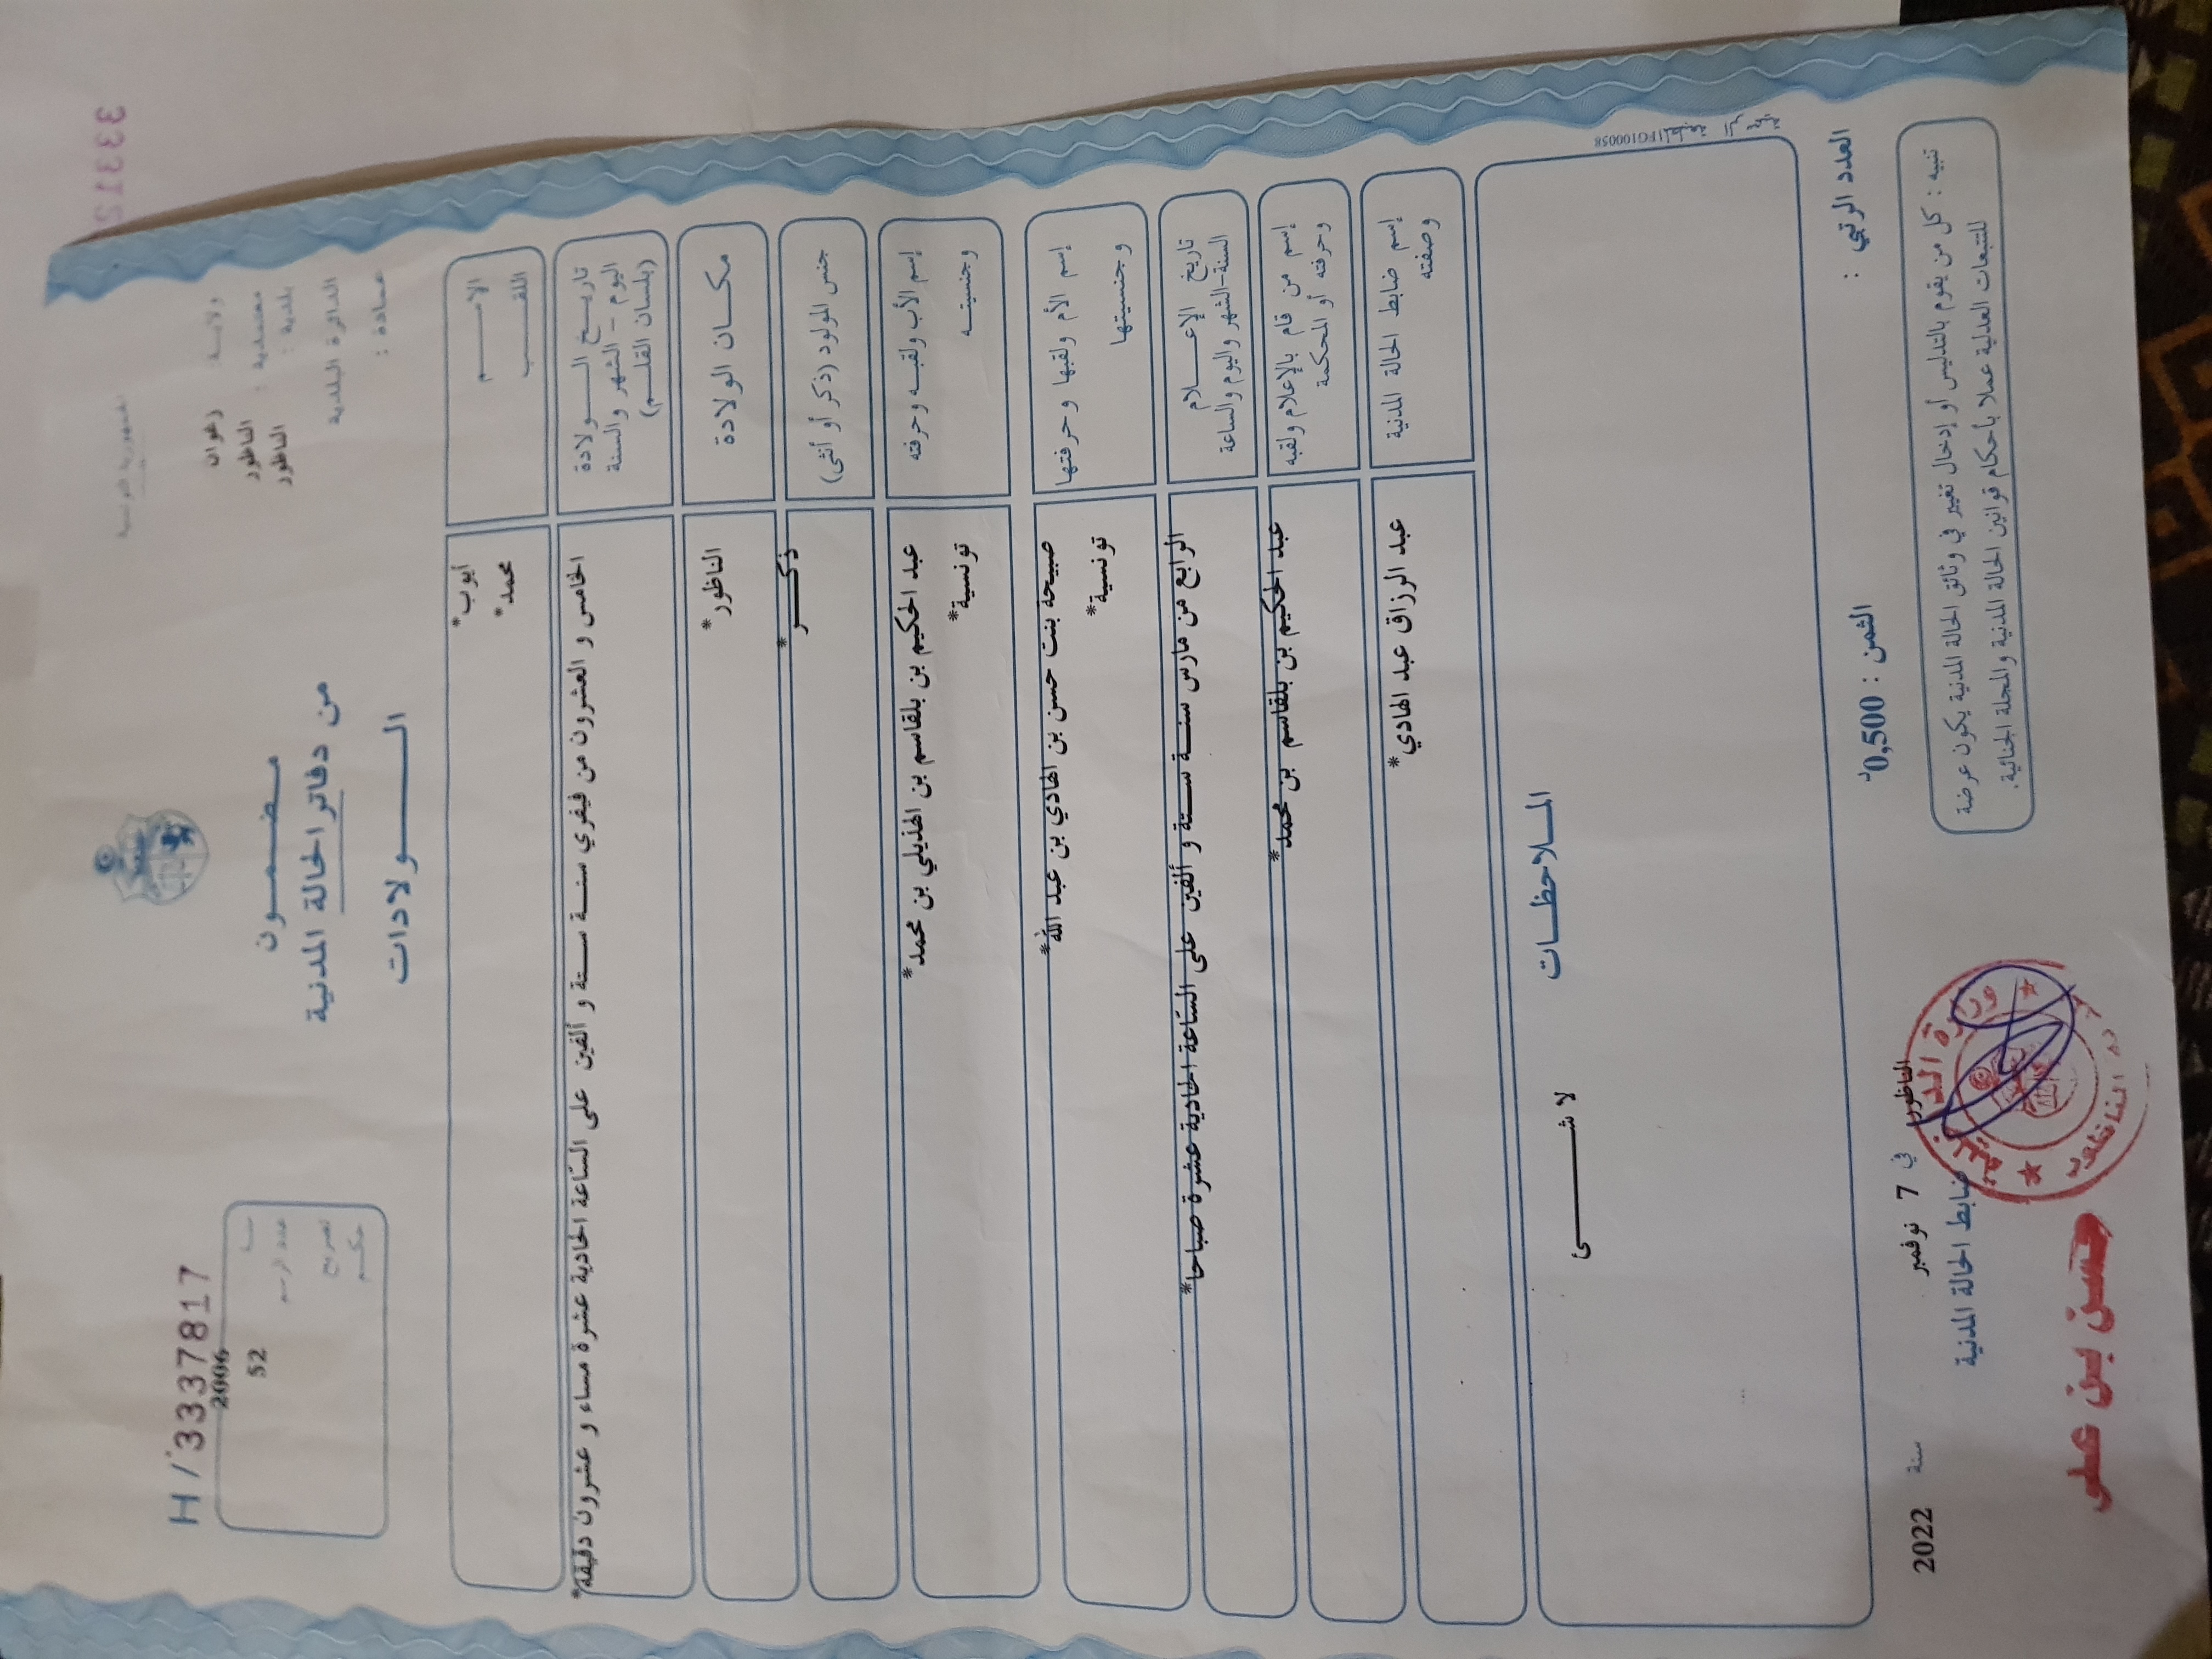 الجمهورية التونسية
ولاية : زغوان
معتمدية : الناظور
بلدية : الناظور
الدائرة البلدية
عمادة :
مضمون
من دفاتر الحالة المدنية
الولادات
H / 3337817
سنة 2006
عدد الرسم 52
تصريح
حكم
الاسم ايوب*
اللقب محمد*
تاريخ الولادة
اليوم - الشهر والسنة
(بلسان القلم)
الخامس و العشرون من فيفري سنة ستة و ألفين على الساعة الحادية عشرة مساء و عشرون دقيقة*
مكان الولادة الناظور*
جنس المولود (ذكر أو أنثى) ذكر*
إسم الأب ولقبه وحرفته عبد الحكيم بن بلقاسم بن الهذيلي بن محمد*
وجنسيته تونسية*
إسم الأم ولقبها وحرفتها صبيحه بنت حسن بن الهادي بن عبد الله*
وجنسيتها تونسية*
تاريخ الإعلام
السنة-الشهر واليوم والساعة
الرابع من مارس سنة ستة و ألفين على الساعة الحادية عشرة صباحا*
إسم من قام بالإعلام ولقبه
وحرفته أو المحكمة
عبد الحكيم بن بلقاسم بن محمد*
إسم ضابط الحالة المدنية
وصفته
عبد الرزاق عبد الهادي*
الملاحظات
لا شيء
العدد الرتبي :
الثمن : 0,500د
الناظور في 7 نوفمبر سنة 2022
ضابط الحالة المدنية
تنبيه : كل من يقوم بالتدليس أو إدخال تغيير في وثائق الحالة المدنية يكون عرضة
للتتبعات العدلية عملا بأحكام قوانين الحالة المدنية والمجلة الجنائية.
حسن بن علي